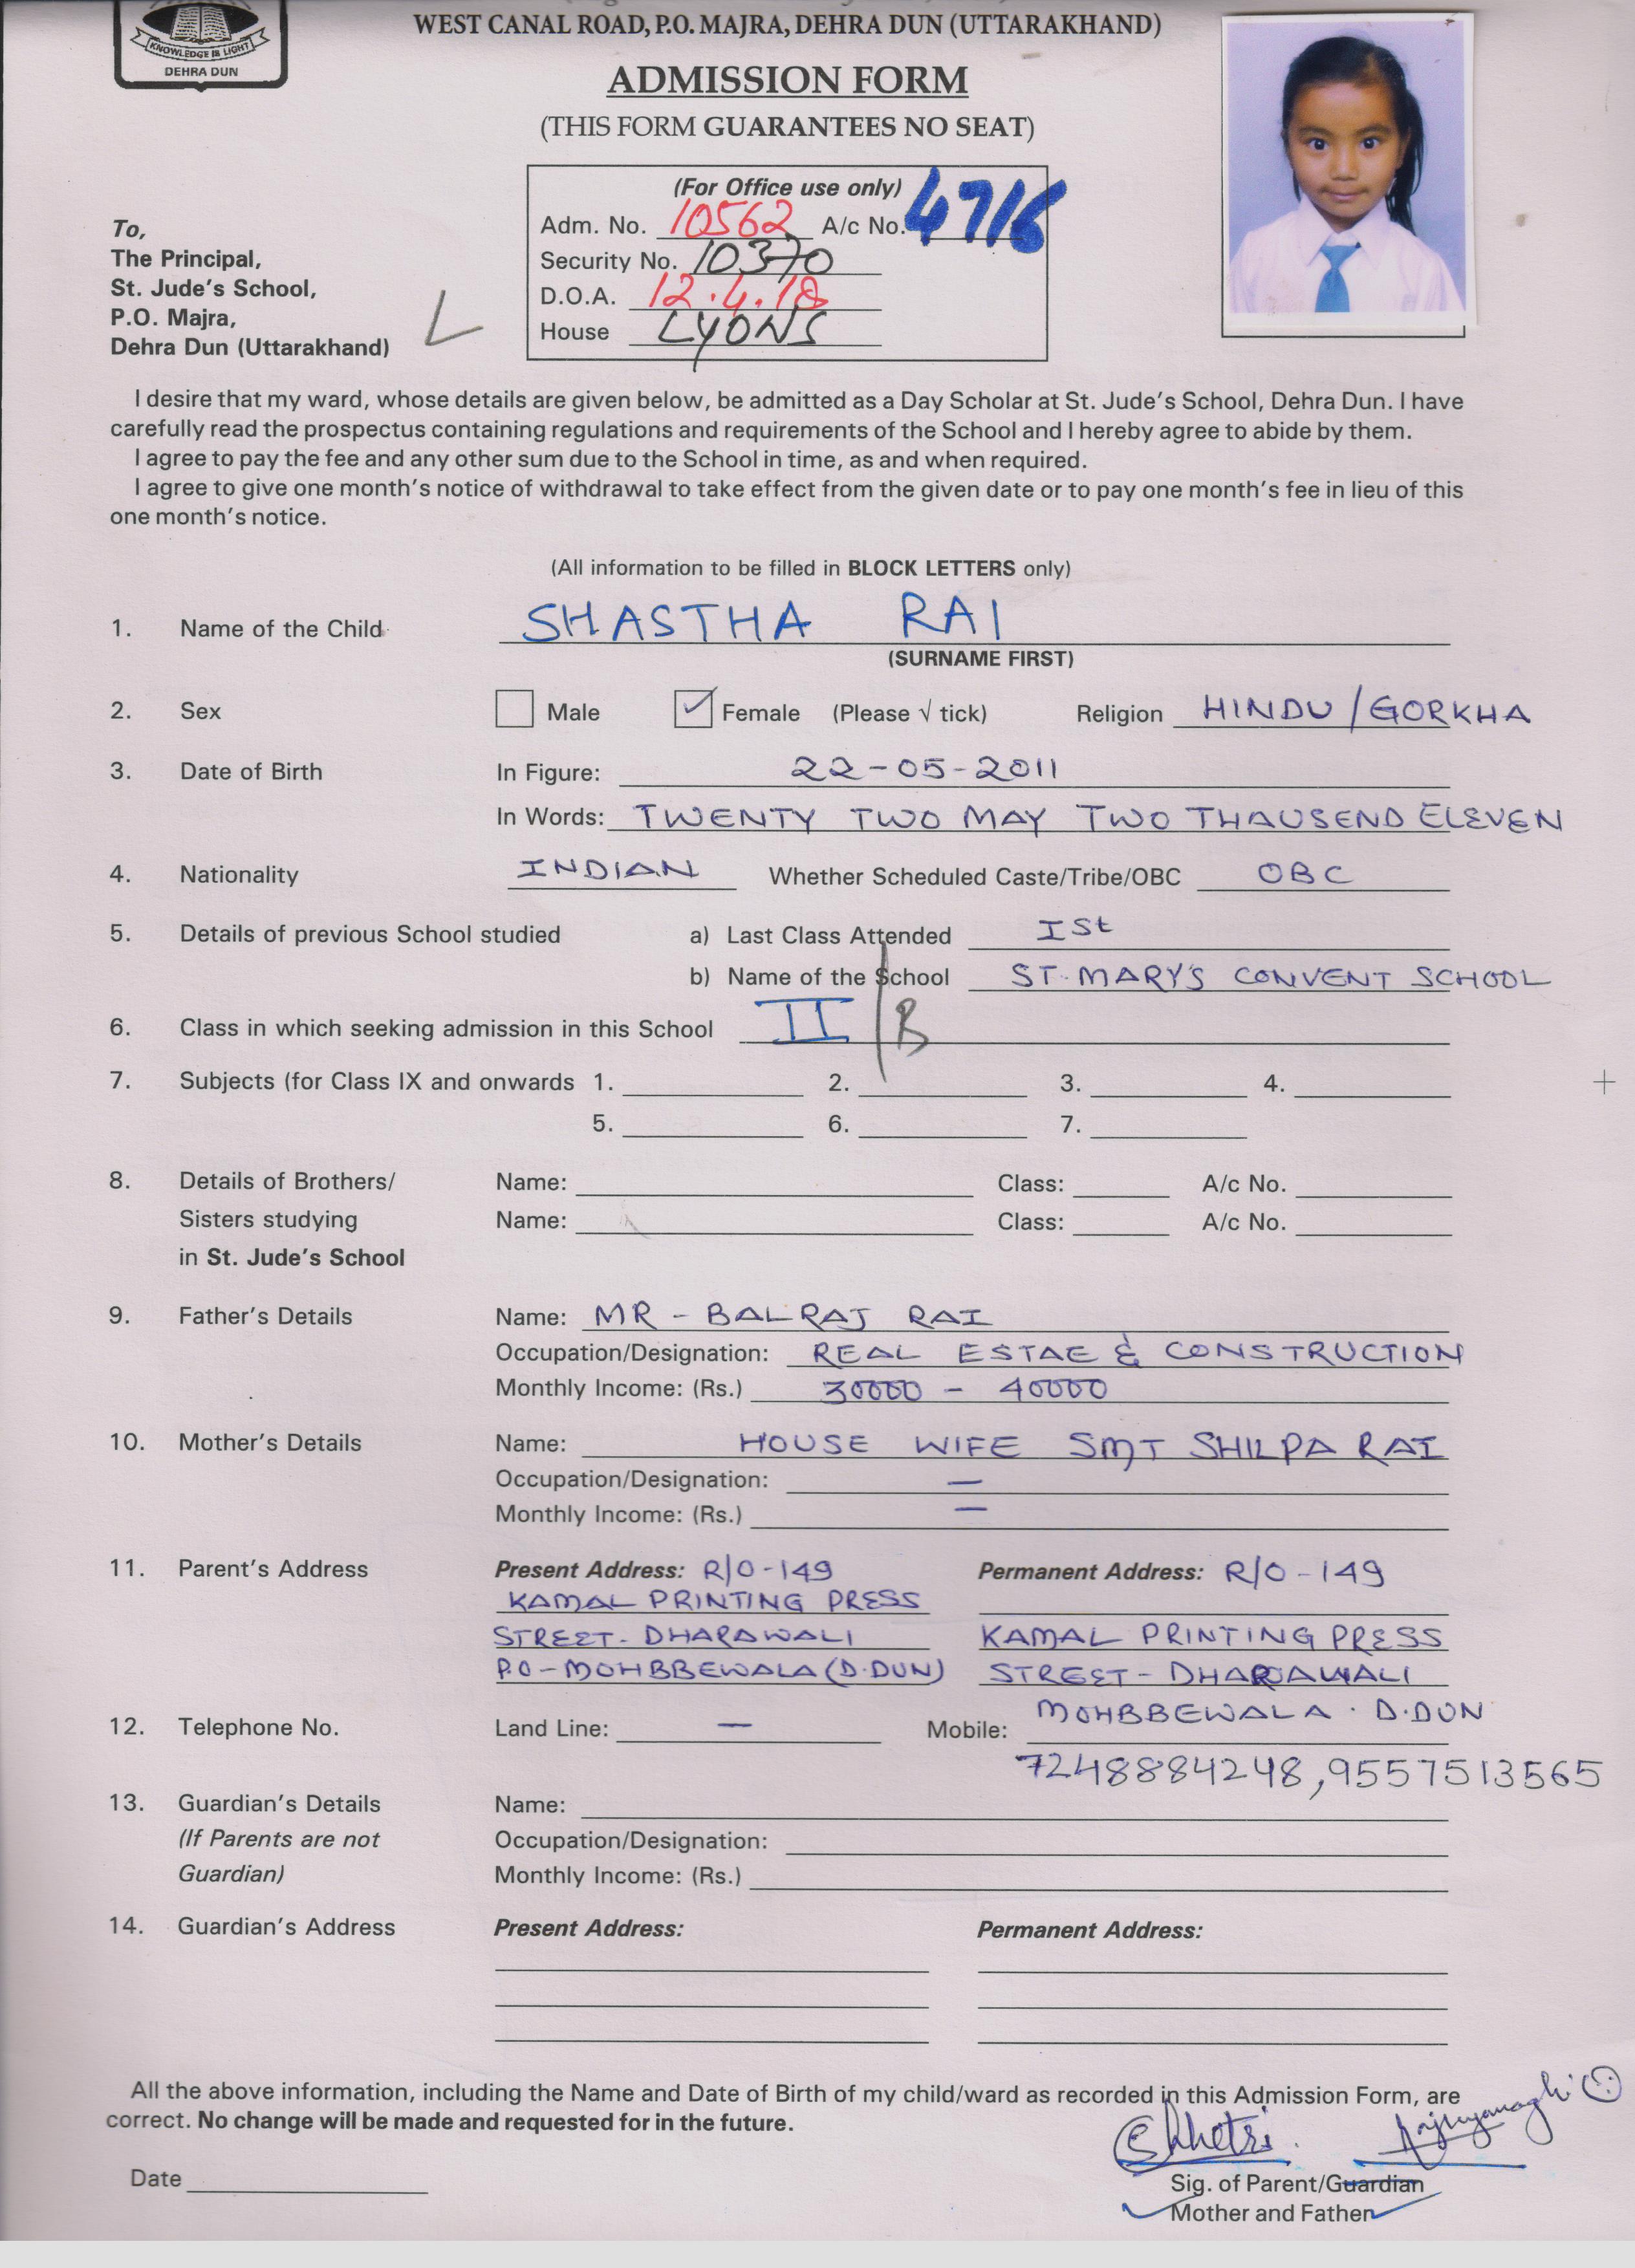 KNOWLEDGE IS LIGHT
DEHRA DUN
WEST CANAL ROAD, P.O. MAJRA, DEHRA DUN (UTTARAKHAND)
ADMISSION FORM
(THIS FORM GUARANTEES NO SEAT)
(For Office use only)
Adm. No. 10562 A/c No. 4716
Security No. 10370
D.O.A. 12.4.18
House LYONS
To,
The Principal,
St. Jude's School,
P.O. Majra,
Dehra Dun (Uttarakhand)
I desire that my ward, whose details are given below, be admitted as a Day Scholar at St. Jude's School, Dehra Dun. I have
carefully read the prospectus containing regulations and requirements of the School and I hereby agree to abide by them.
I agree to pay the fee and any other sum due to the School in time, as and when required.
I agree to give one month's notice of withdrawal to take effect from the given date or to pay one month's fee in lieu of this
one month's notice.
(All information to be filled in BLOCK LETTERS only)
1. Name of the Child SHASTHA RAI
(SURNAME FIRST)
2. Sex Male Female (Please √ tick) Religion HINDU / GORKHA
3. Date of Birth In Figure: 22-05-2011
In Words: TWENTY TWO MAY TWO THAUSEND ELEVEN
4. Nationality INDIAN Whether Scheduled Caste/Tribe/OBC OBC
5. Details of previous School studied a) Last Class Attended ISt
b) Name of the School ST. MARY'S CONVENT SCHOOL
6. Class in which seeking admission in this School II / B
7. Subjects (for Class IX and onwards 1. 2. 3. 4.
5. 6. 7.
8. Details of Brothers/ Name: Class: A/c No.
Sisters studying Name: Class: A/c No.
in St. Jude's School
9. Father's Details Name: MR - BALRAJ RAI
Occupation/Designation: REAL ESTAE & CONSTRUCTION
Monthly Income: (Rs.) 30000 - 40000
10. Mother's Details Name: HOUSE WIFE SMT SHILPA RAI
Occupation/Designation: —
Monthly Income: (Rs.) —
11. Parent's Address Present Address: R/O-149 Permanent Address: R/O-149
KAMAL PRINTING PRESS
STREET- DHARAWALI KAMAL PRINTING PRESS
P.O-MOHBBEWALA (D.DUN) STREET- DHARAWALI
MOHBBEWALA . D.DUN
12. Telephone No. Land Line: — Mobile:
7248884248, 9557513565
13. Guardian's Details Name:
(If Parents are not Occupation/Designation:
Guardian) Monthly Income: (Rs.)
14. Guardian's Address Present Address: Permanent Address:
All the above information, including the Name and Date of Birth of my child/ward as recorded in this Admission Form, are
correct. No change will be made and requested for in the future.
Date
Sig. of Parent/Guardian
Mother and Father